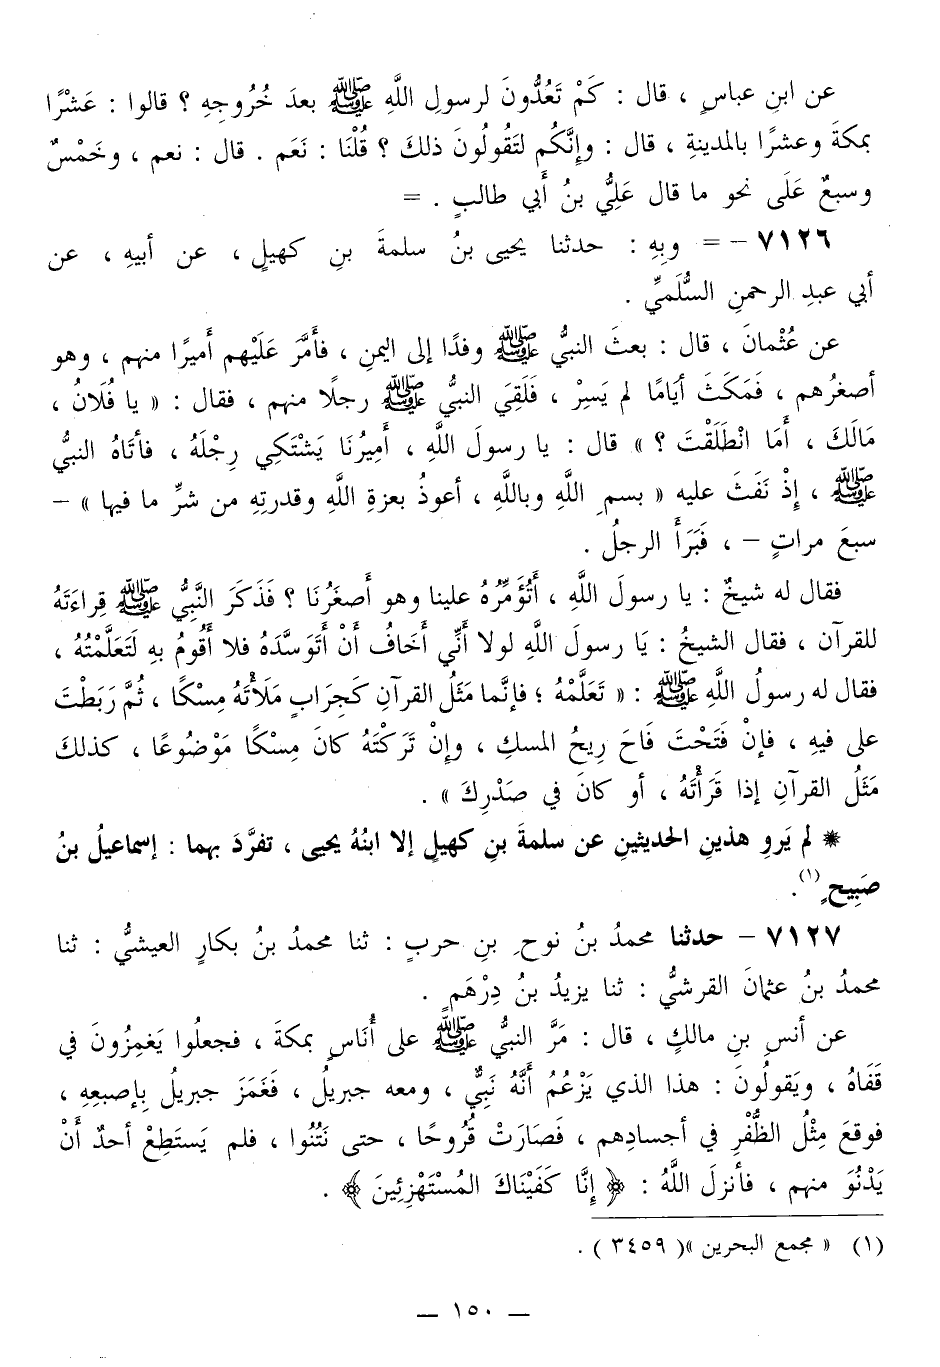 عن ابنِ عباسٍ ، قال : كَمْ تَعُدُّونَ لرسولِ اللَّهِ ﷺ بعدَ خُرُوجِهِ ؟ قالوا : عَشْرًا
بمكةَ وعشرًا بالمدينةِ ، قال : وإِنَّكُم لتَقُولُونَ ذلكَ ؟ قُلْنَا : نَعَم . قال : نعم ، وخَمْسٌ
وسبعٌ عَلَى نحوِ ما قال عَلِيُّ بنُ أَبي طالبٍ . =
٧١٢٦ - = وبِهِ : حدثنا يحيى بنُ سلمةَ بنِ كهيلٍ ، عن أبيهِ ، عن
أبي عبدِ الرحمنِ السُّلَمِيِّ .
عن عُثْمانَ ، قال : بعثَ النبيُّ ﷺ وفدًا إلى اليمنِ ، فأَمَّرَ عَلَيْهِم أَميرًا منهم ، وهو
أصغرُهم ، فَمَكَثَ أيامًا لم يَسِرْ ، فَلَقِيَ النبيُّ ﷺ رجلًا منهم ، فقال : « يا فُلَانُ ،
مَالَكَ ، أَمَا انْطَلَقْتَ ؟ » قال : يا رسولَ اللَّهِ ، أَمِيرُنَا يَشْتَكِي رِجْلَهُ ، فأتَاهُ النبيُّ
ﷺ ، إِذْ نَفَثَ عليه « بسمِ اللَّهِ وباللَّهِ ، أعوذُ بعزةِ اللَّهِ وقدرتِهِ من شرِّ ما فيها » -
سبعَ مراتٍ - ، فَبَرَأَ الرجلُ .
فقال له شيخٌ : يا رسولَ اللَّهِ ، أَتُؤَمِّرُهُ علينا وهو أَصغَرُنَا ؟ فَذَكَرَ النَّبِيُّ ﷺ قِراءَتَهُ
للقرآن ، فقال الشيخُ : يَا رسولَ اللَّهِ لولا أَنِّي أَخافُ أَنْ أَتَوسَّدَهُ فلا أَقُومُ بهِ لَتَعَلَّمْتُهُ ،
فقال له رسولُ اللَّهِ ﷺ : « تَعَلَّمْهُ ؛ فإنَّما مَثَلُ القرآنِ كَجِرَابٍ مَلَأْتَهُ مِسْكًا ، ثُمَّ رَبَطْتَ
على فيهِ ، فإنْ فَتَحْتَ فَاحَ رِيحُ المسكِ ، وإِنْ تَرَكْتَهُ كانَ مِسْكًا مَوْضُوعًا ، كذلكَ
مَثَلُ القرآنِ إذا قَرَأْتَهُ ، أو كانَ في صَدْرِكَ » .
* لم يَروِ هذينِ الحديثينِ عن سلمةَ بنِ كهيلٍ إلا ابنُهُ يحيى ، تفرَّدَ بهما : إسماعيلُ بنُ
صَبِيحٍ (١).
٧١٢٧ - حدثنا محمدُ بنُ نوحِ بنِ حربٍ : ثنا محمدُ بنُ بكارٍ العيشيُّ : ثنا
محمدُ بنُ عثمانَ القرشيُّ : ثنا يزيدُ بنُ دِرْهَمٍ .
عن أنسِ بنِ مالكٍ ، قال : مَرَّ النبيُّ ﷺ على أُنَاسٍ بمكةَ ، فجعلُوا يَغمِزُونَ في
قَفَاهُ ، ويَقولُونَ : هذا الذي يَزْعُمُ أَنَّهُ نَبِيٌّ ، ومعه جبريلُ ، فَغَمَزَ جبريلُ بِإصبعِهِ ،
فوقعَ مِثْلُ الظُّفْرِ في أجسادِهم ، فَصَارَتْ قُرُوحًا ، حتى نَتُنُوا ، فلم يَستَطِعْ أحدٌ أَنْ
يَدْنُوَ منهم ، فأنزلَ اللَّهُ : ﴿ إِنَّا كَفَيْنَاكَ المُسْتَهْزِئِينَ ﴾ .
(١) « مجمع البحرين »( ٣٤٥٩ ) .
— ١٥٠ —